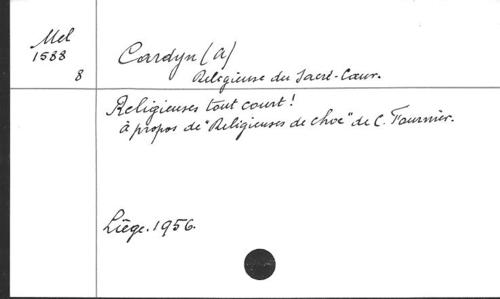 Mel
1588
8
Cardyn (A)
Religieuse du Sacré-Cœur.
Religieuses tout court!
à propos de "Religieuses de choc" de C. Fournier.
Liège. 1956.